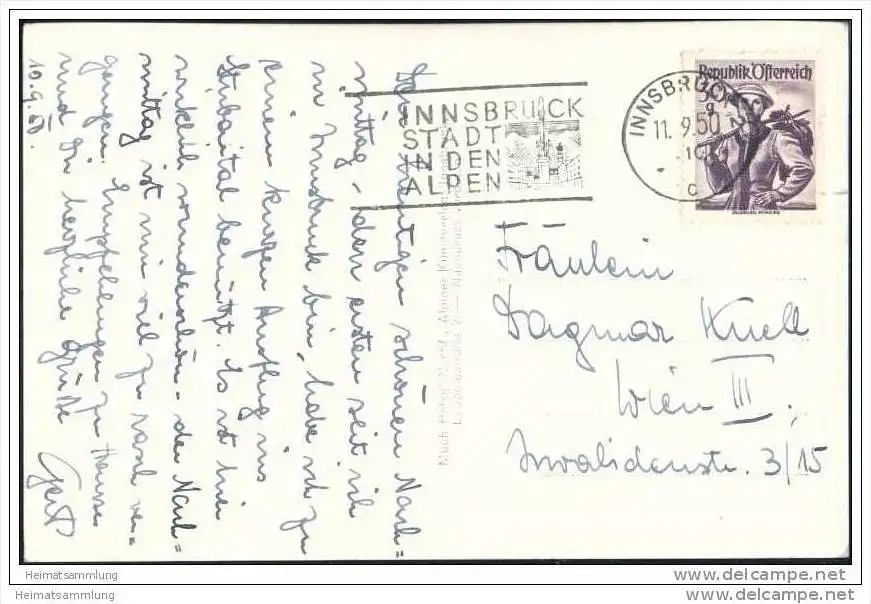 Den heutigen schönen Nach=
mittag, den ersten seit ich
in Innsbruck bin, habe ich zu
einem kurzen Ausflug ins
Stubaital benützt. Es ist hier
wirklich wunderschön – der Nach=
mittag ist mir viel zu rasch ver=
gangen. Empfehlungen zu Hause
und Dir herzliche Grüße
10.9.50. Gert
INNSBRUCK
STADT
IN DEN
ALPEN
INNSBRUCK
11.9.50
Republik Österreich
Fräulein
Dagmar Knell
Wien III.
Invalidenstr. 3/15
Heimatsammlung
Heimatsammlung
www.delcampe.net
www.delcampe.net